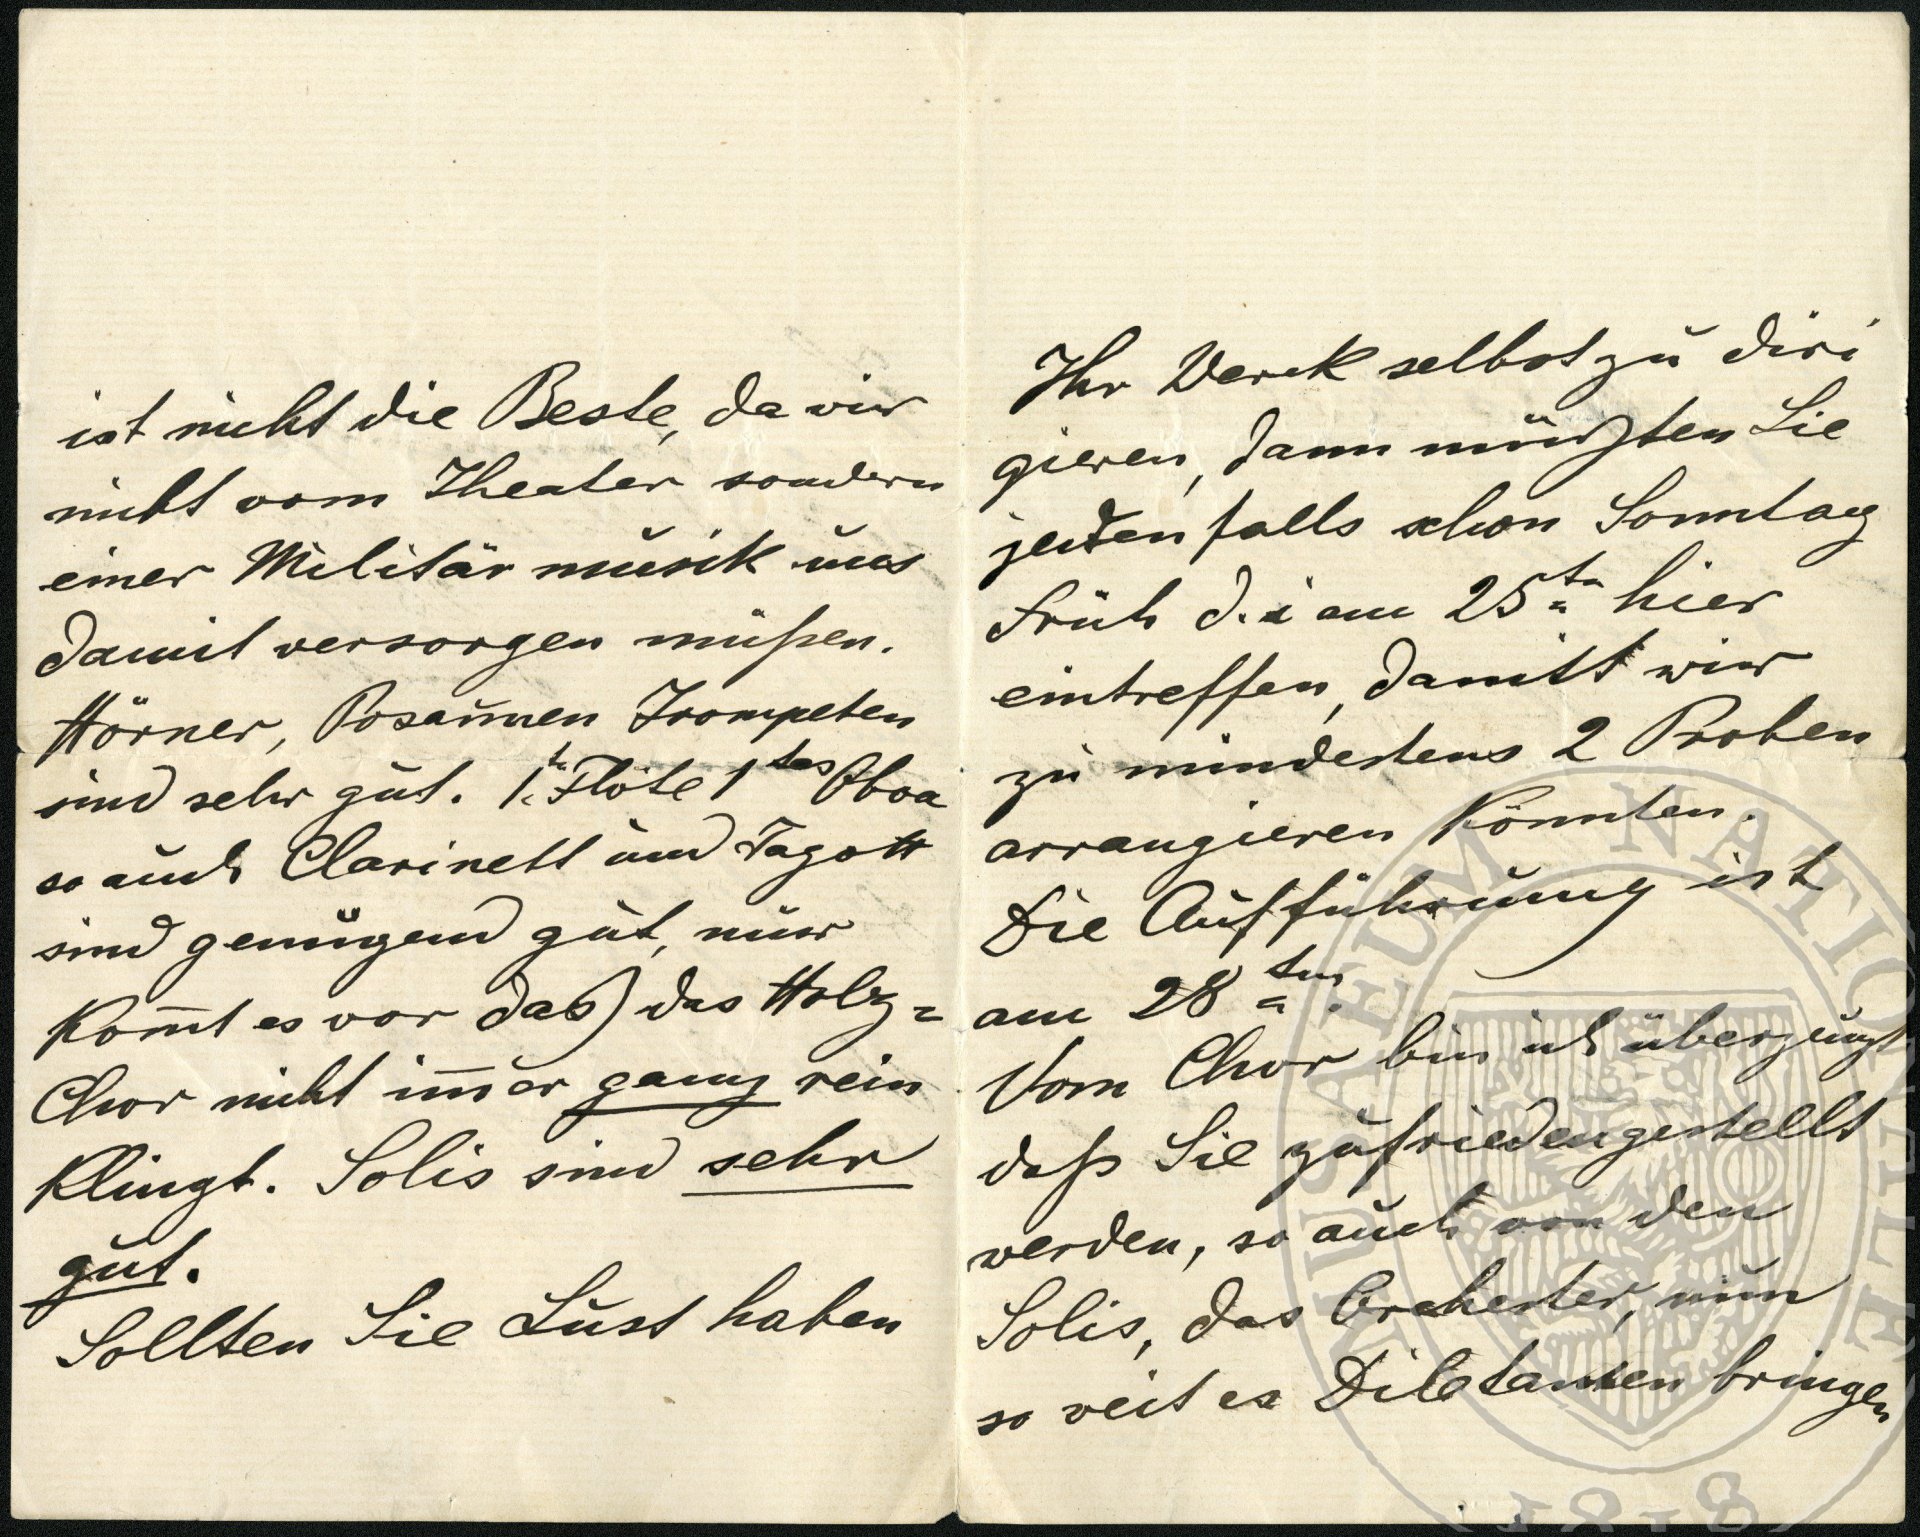 ist nicht die Beste, da wir
nicht vom Theater sondern
einer Militär musik uns
damit versorgen müßen.
Hörner, Posaunen Trompeten
sind sehr gut. 1te Flöte 1tes Oboa
so auch Clarinett und Fagott
sind genügend gut, nur
kom̅t es vor das) das Holz=
Chor nicht im̅er ganz rein
klingt. Solis sind sehr
gut.
Sollten Sie Lust haben
Ihr Werck selbst zu diri
gieren, dann müßten Sie
jedenfalls schon Sonntag
früh d. i am 25ten hier
eintreffen, damitt wir
zu mindestens 2 Proben
arrangieren könnten.
Die Aufführung ist
am 28ten.
Vom Chor bin ich überzeugt
daß Sie zufriedengestellt
werden, so auch von den
Solis, das Orchester, nun
so weit es Diletanten bringen
MUSAEUM NATIONALE
1818